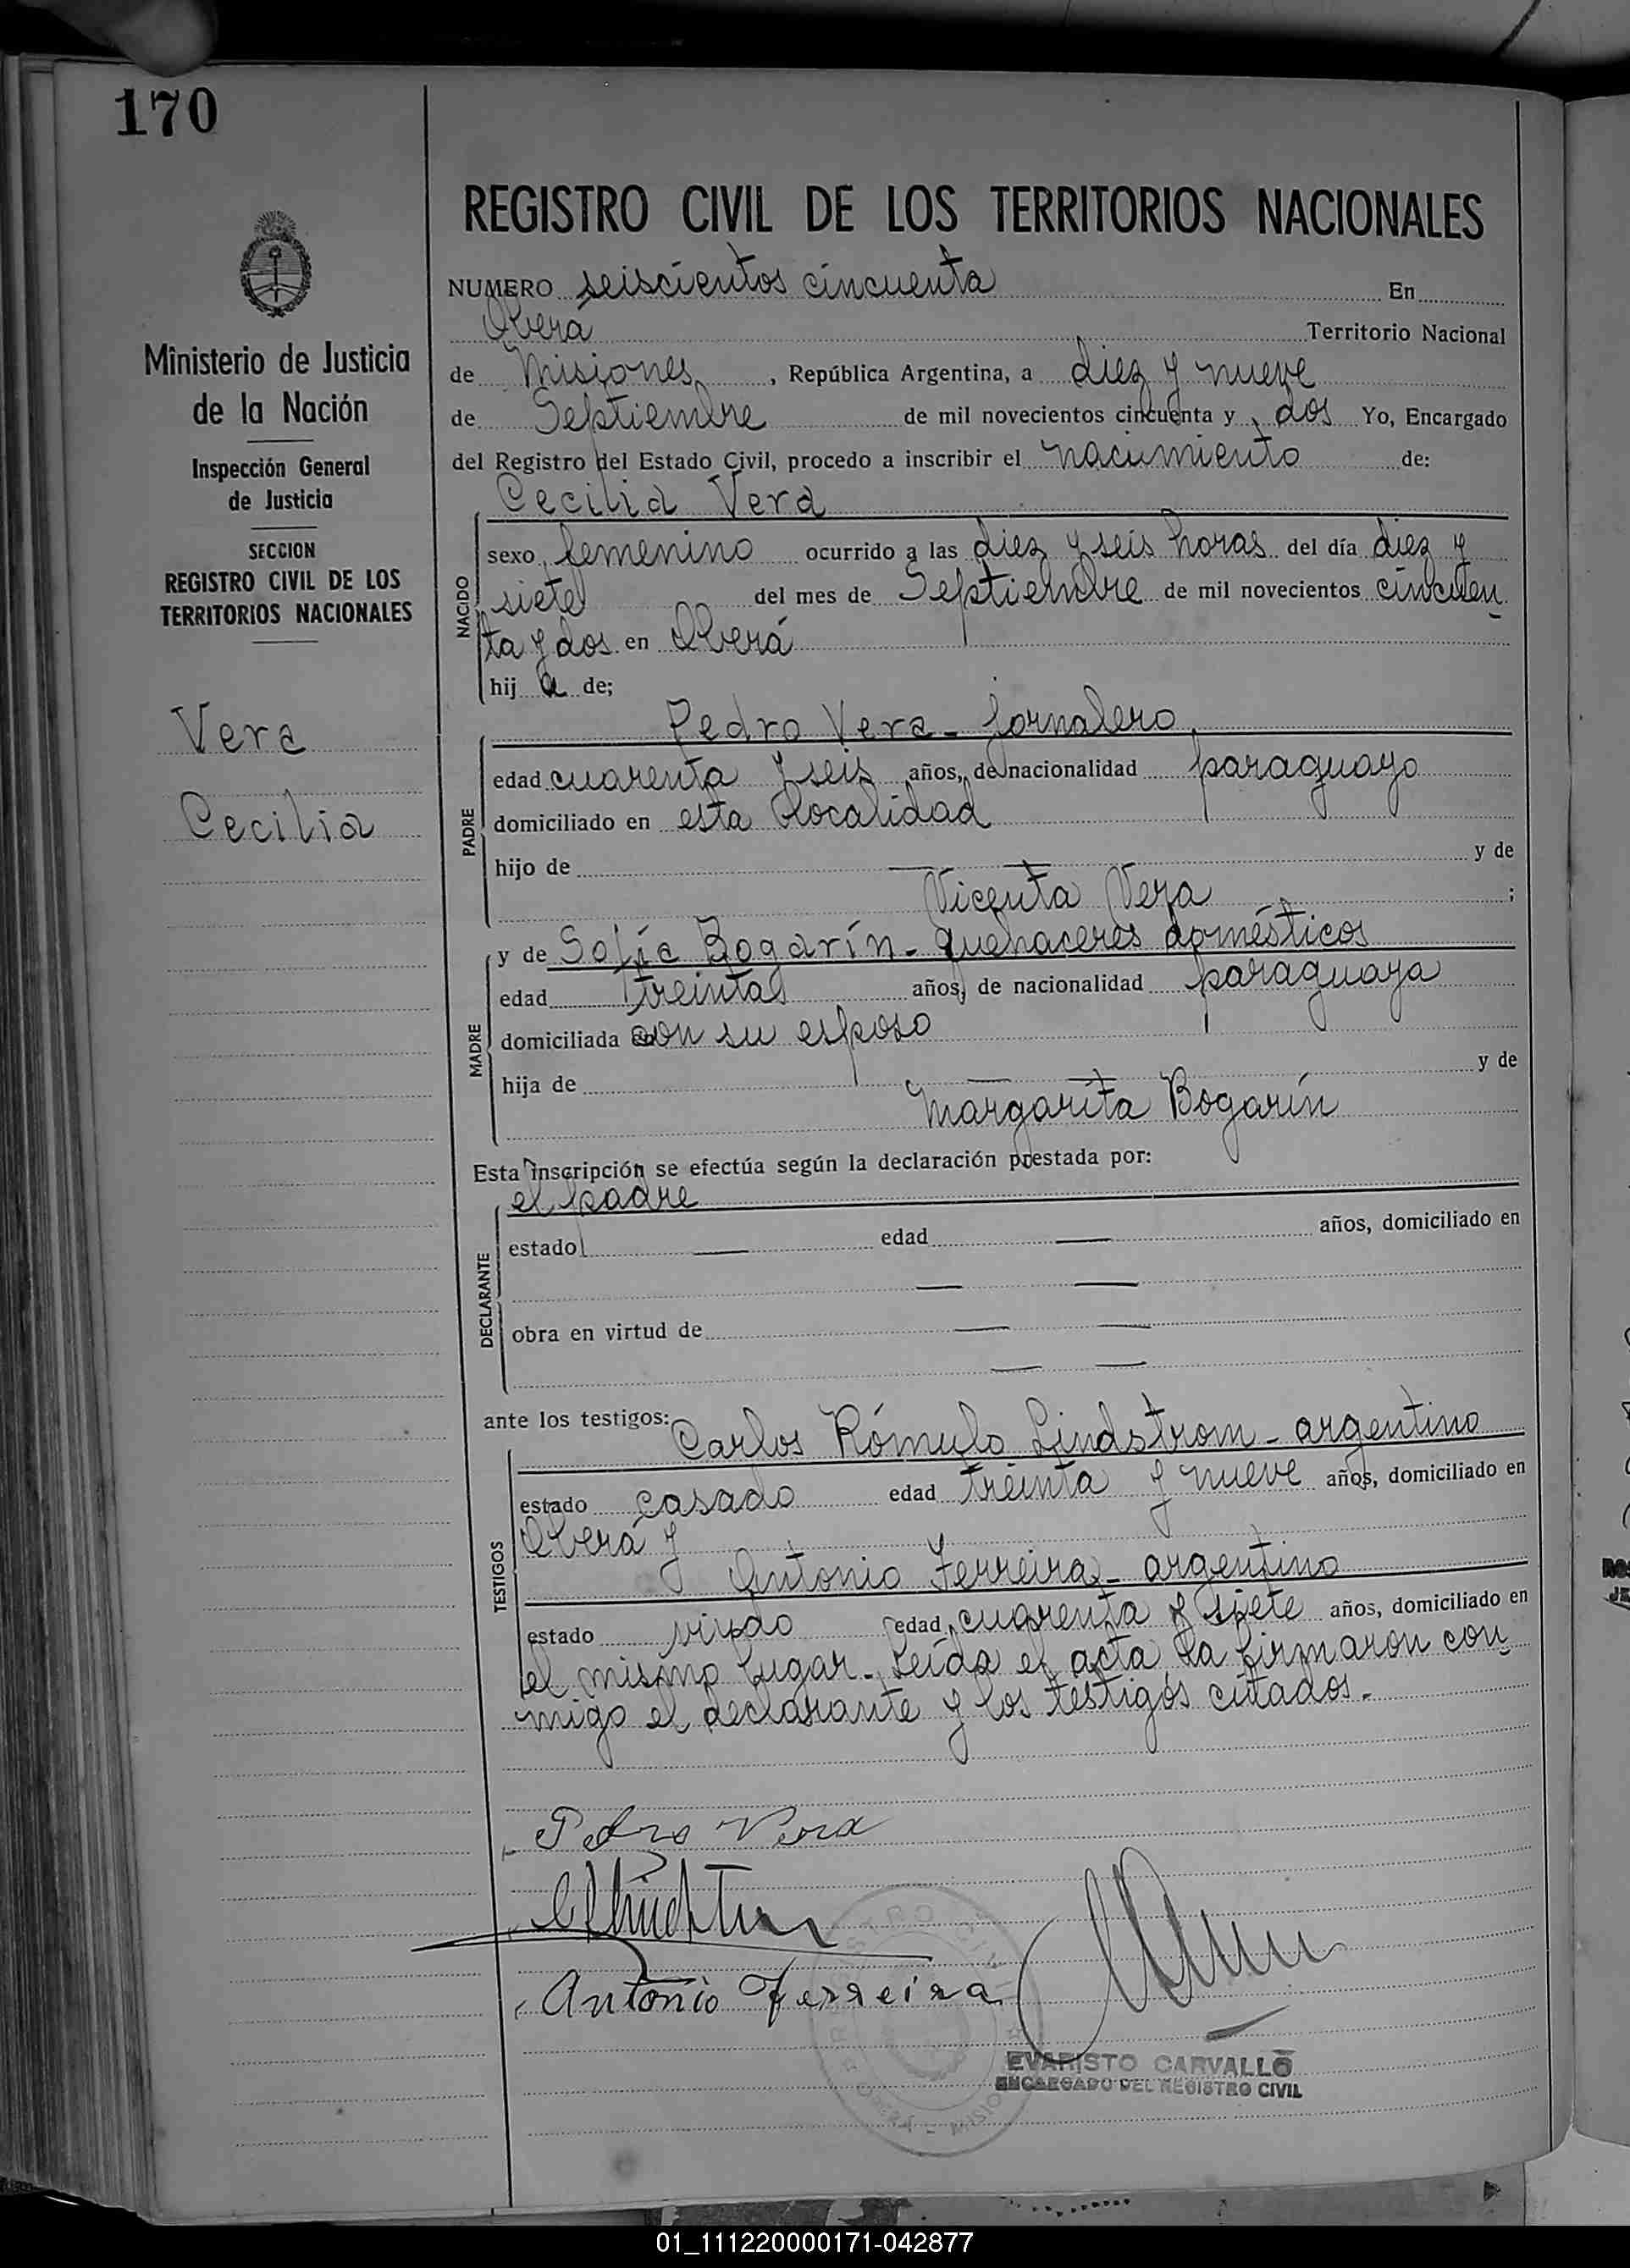 170
Ministerio de Justicia
de la Nación
Inspección General
de Justicia
SECCION
REGISTRO CIVIL DE LOS
TERRITORIOS NACIONALES
Vera
Cecilia
REGISTRO CIVIL DE LOS TERRITORIOS NACIONALES
NUMERO seiscientos cincuenta En
Oberá Territorio Nacional
de Misiones, República Argentina, a diez y nueve
de Septiembre de mil novecientos cincuenta y dos Yo, Encargado
del Registro del Estado Civil, procedo a inscribir el nacimiento de:
Cecilia Vera
NACIDO
sexo femenino ocurrido a las diez y seis horas del día diez y
siete del mes de Septiembre de mil novecientos cincuen
ta y dos en Oberá
hij a de;
Pedro Vera - jornalero
PADRE
edad cuarenta y seis años, de nacionalidad paraguayo
domiciliado en esta localidad
hijo de — — y de
Vicenta Vera ;
y de Sofía Bogarín - quehaceres domésticos
MADRE
edad treinta años, de nacionalidad paraguaya
domiciliada con su esposo
hija de — — y de
Margarita Bogarín
Esta inscripción se efectúa según la declaración prestada por:
el padre
DECLARANTE
estado — edad — años, domiciliado en
— —
obra en virtud de — —
— —
ante los testigos: Carlos Rómulo Lindstrom - argentino
TESTIGOS
estado casado edad treinta y nueve años, domiciliado en
Oberá y
Antonio Ferreira - argentino
estado viudo edad cuarenta y siete años, domiciliado en
el mismo lugar. Leída el acta la firmaron con
migo el declarante y los testigos citados.-
Pedro Vera
Antonio Ferreira
EVARISTO CARVALLO
ENCARGADO DEL REGISTRO CIVIL
01_111220000171-042877